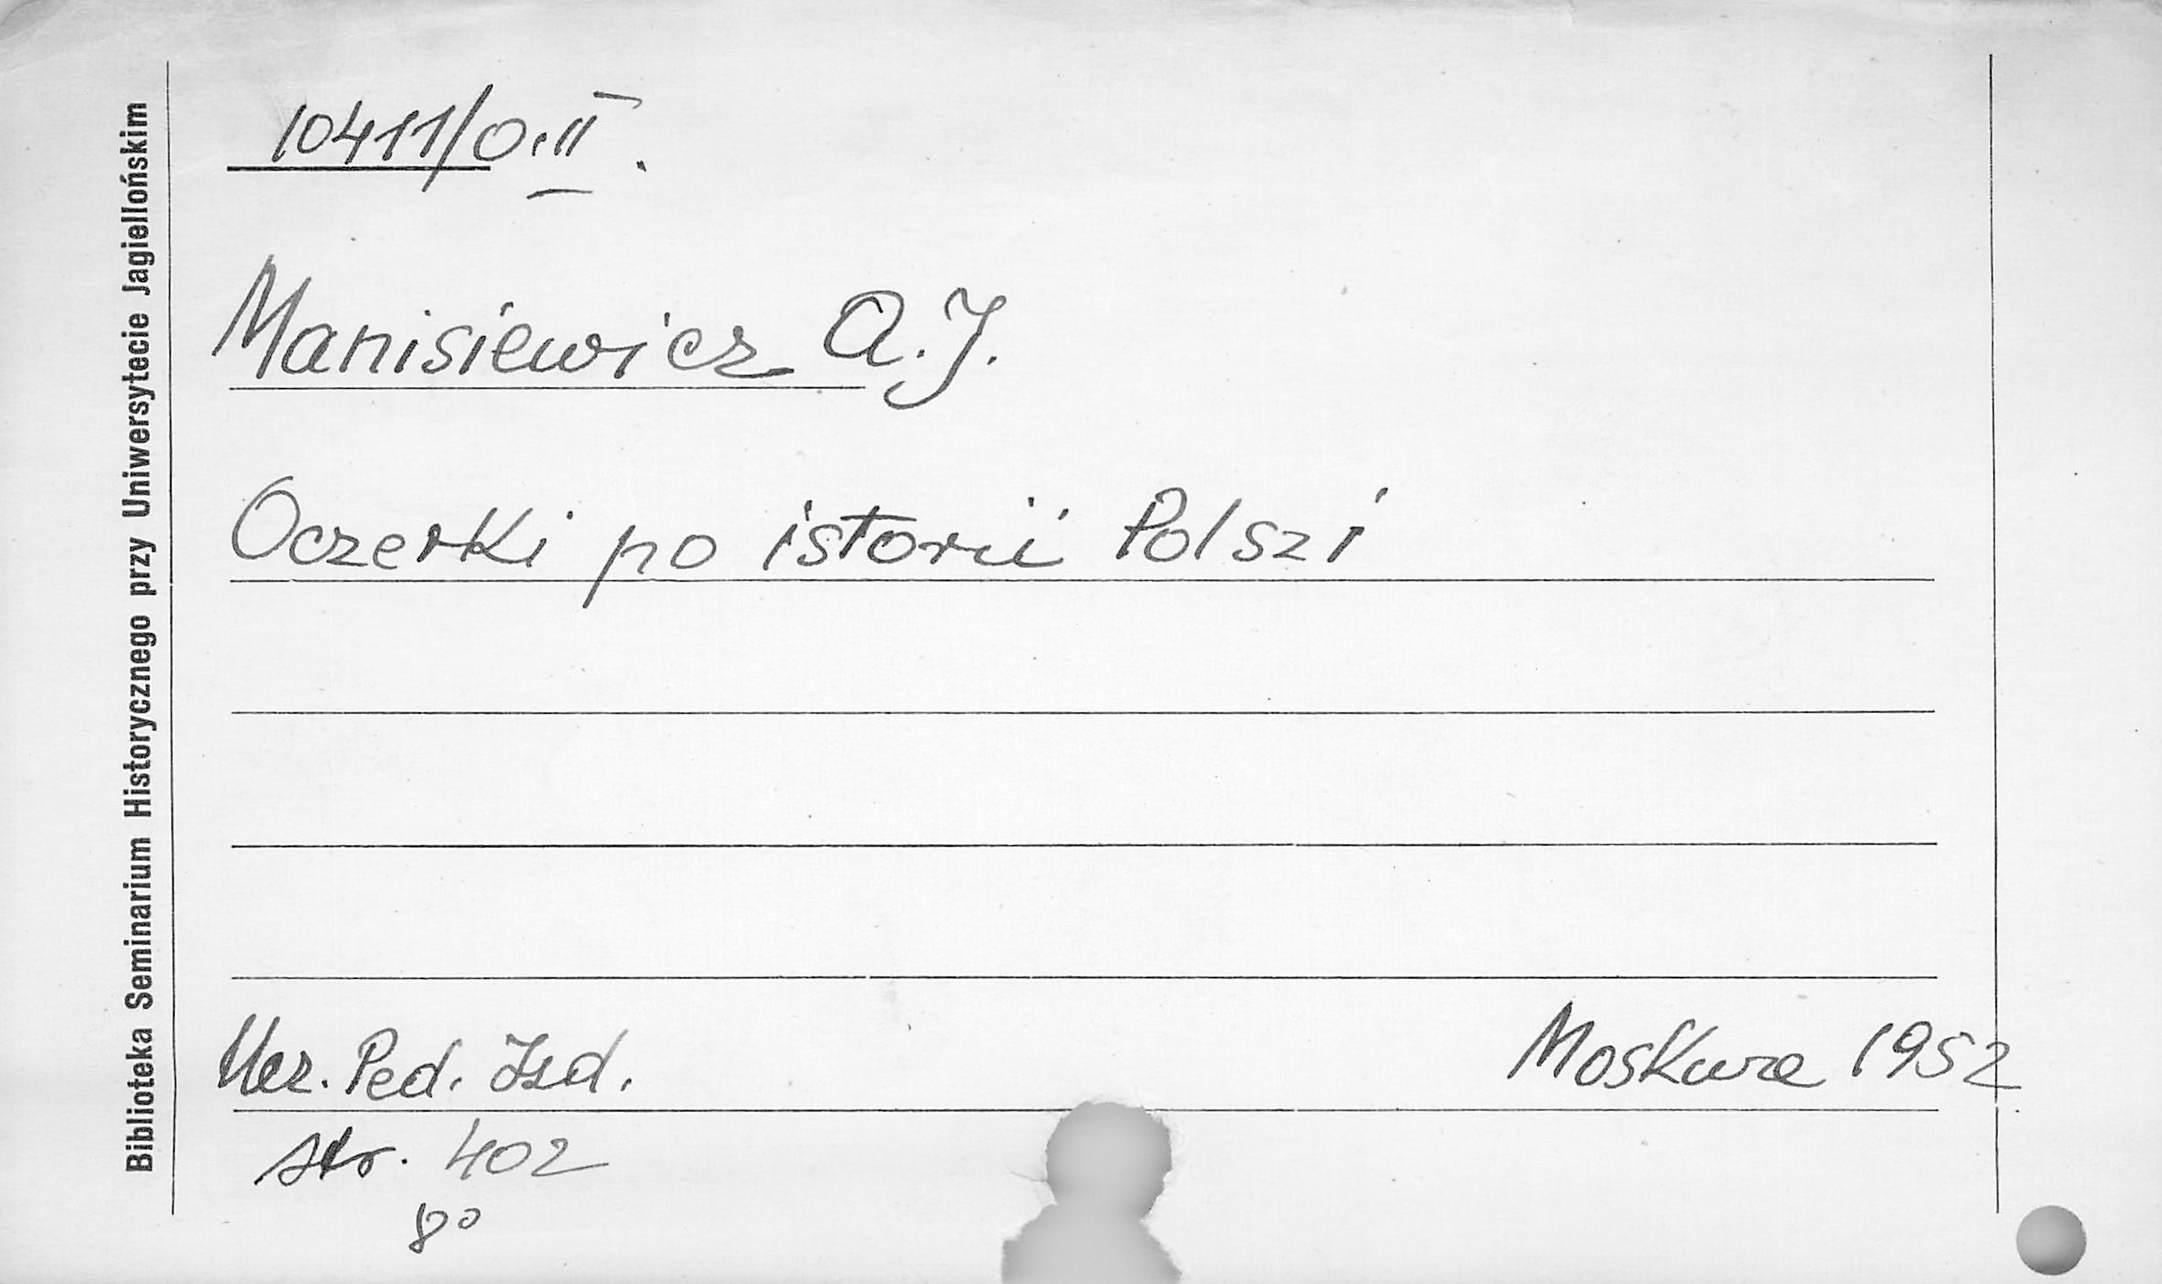 Biblioteka Seminarium Historycznego przy Uniwersytecie Jagiellońskim
10411/O.II.
Manisiewicz A.J.
Oczerki po istorii Polszi
Ucz. Ped. Izd.
Moskwa 1952
str. 402
8°